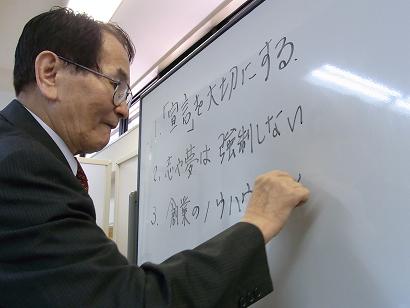 1. 「宣言」を大切にする.
2. 志や夢は強制しない
3. 創業のノウハウ